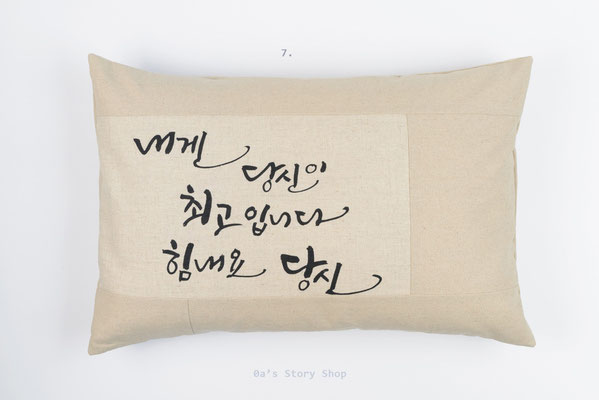 7.
내게
당신이
최고입니다
힘내요 당신
0a's Story Shop